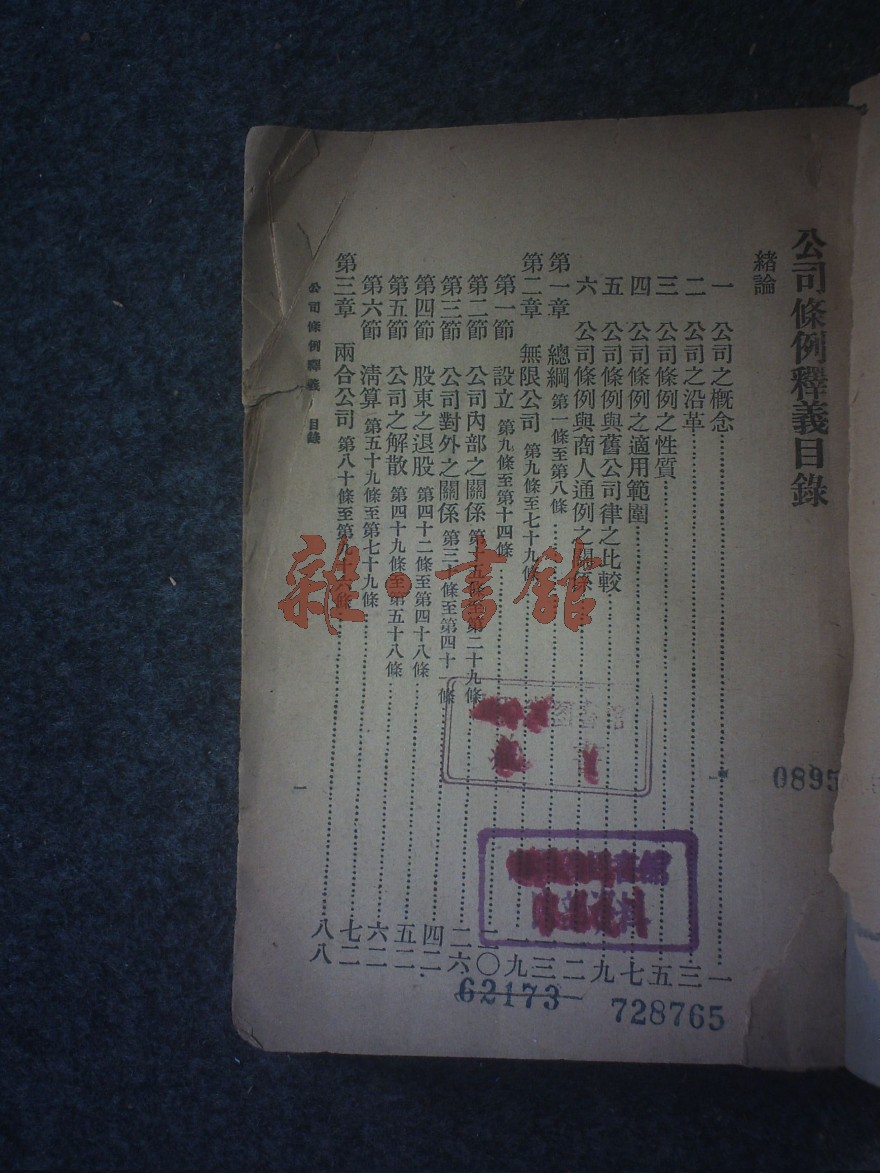 公司條例釋義目錄
緒論
一 公司之概念 一
二 公司之沿革 三
三 公司條例之性質 五
四 公司條例之適用範圍 七
五 公司條例與舊公司律之比較 九
六 公司條例與商人通例之關係 一二
第一章 總綱 第一條至第八條 一三
第二章 無限公司 第九條至七十九條 一九
第一節 設立 第九條至第十四條 二〇
第二節 公司內部之關係 第十五條至第二十九條 二六
第三節 公司對外之關係 第三十條至第四十一條 四二
第四節 股東之退股 第四十二條至第四十八條 五二
第五節 公司之解散 第四十九條至第五十八條 六二
第六節 清算 第五十九條至第七十九條 七二
第三章 兩合公司 第八十條至第九十六條 八八
公司條例釋義 目錄
一
雜·書館
0895
62173
728765